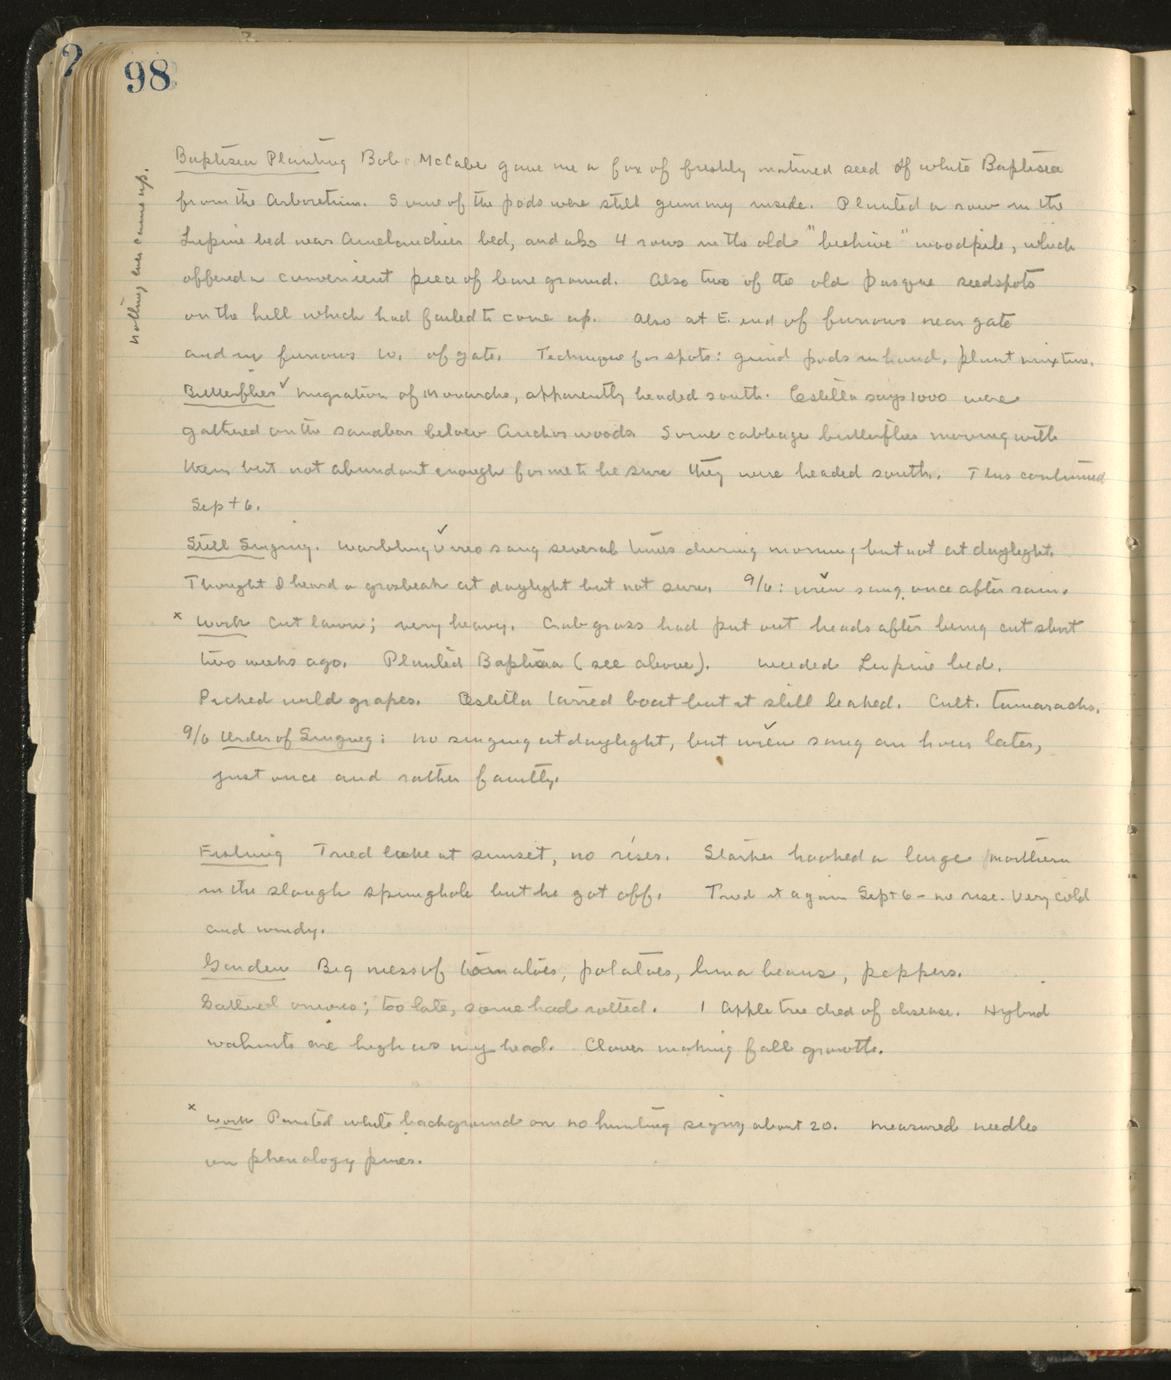 98
nothing ever came up.
Baptisia Planting Bob McCabe gave me a box of freshly matured seed of white Baptisia
from the Arboretum. Some of the pods were still gummy inside. Planted a row in the
Lupine bed near Amelanchier bed, and also 4 rows in the old "beehive" woodpile, which
offered a convenient piece of bare ground. Also two of the old Pasque seedspots
on the hill which had failed to come up. Also at E. end of furrows near gate
and in furrows W. of gate. Technique for spots: grind pods in hand, plant mixture.
Butterflies ✓ migration of monarchs, apparently headed south. Estella says 1000 were
gathered on the sandbar below Anchor woods. Some cabbage butterflies moving with
them but not abundant enough for me to be sure they were headed south. This continued
Sept 6.
Still Singing. Warbling ✓ vireo sang several times during morning but not at daylight.
Thought I heard a grosbeak at daylight but not sure. 9/6: wren ✓ sang once after rain.
x Work Cut lawn; very heavy. Crab grass had put out heads after being cut short
two weeks ago. Planted Baptisia (see above). Weeded Lupine bed.
Picked wild grapes. Estella tarred boat but it still leaked. Cult. tamaracks.
9/6 Order of Singing: no singing at daylight, but wren ✓ sang an hour later,
just once and rather faintly.
Fishing Tried lake at sunset, no rises. Starker hooked a large northern
in the slough springhole but he got off. Tried it again Sept 6 - no rise. Very cold
and windy.
Garden Big mess of tomatoes, potatoes, lima beans, peppers.
Gathered onions; too late, some had rotted. 1 Apple tree died of disease. Hybrid
walnuts are high as my head. Clover making fall growth.
x Work Painted white background on no hunting signs, about 20. Measured needles
on phenology pines.